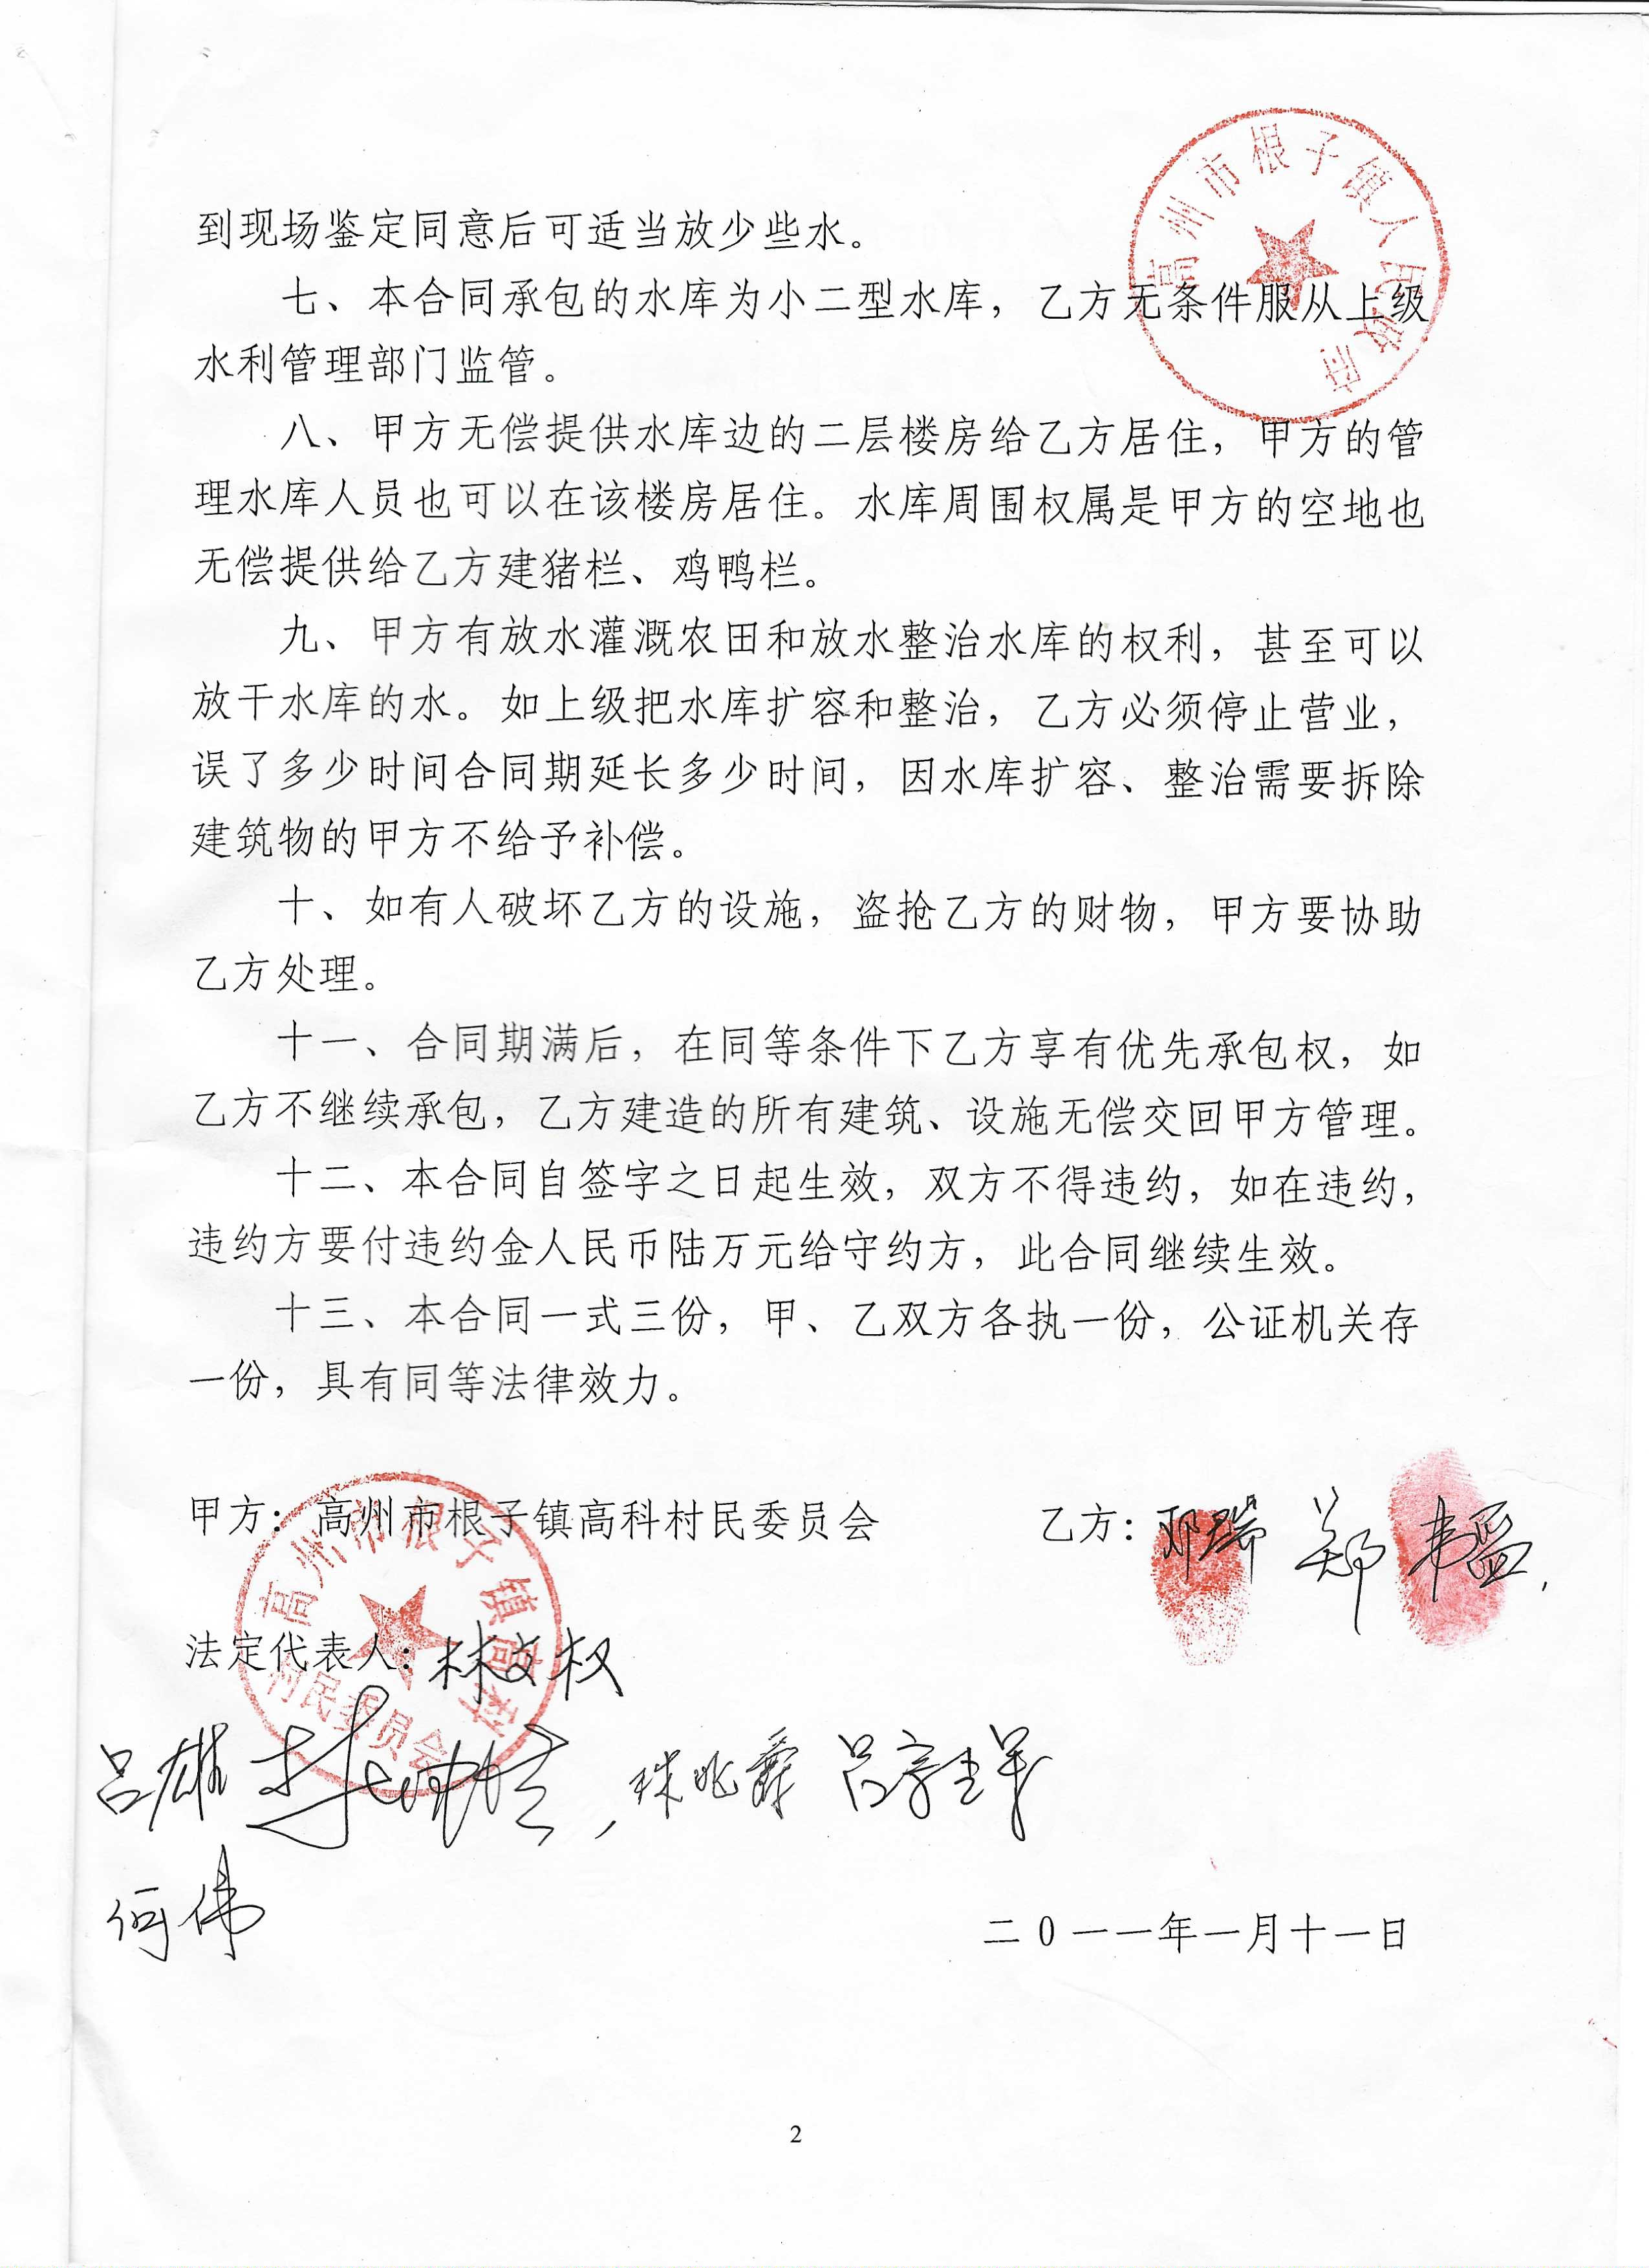 高州市根子镇人民政府
到现场鉴定同意后可适当放少些水。
七、本合同承包的水库为小二型水库，乙方无条件服从上级
水利管理部门监管。
八、甲方无偿提供水库边的二层楼房给乙方居住，甲方的管
理水库人员也可以在该楼房居住。水库周围权属是甲方的空地也
无偿提供给乙方建猪栏、鸡鸭栏。
九、甲方有放水灌溉农田和放水整治水库的权利，甚至可以
放干水库的水。如上级把水库扩容和整治，乙方必须停止营业，
误了多少时间合同期延长多少时间，因水库扩容、整治需要拆除
建筑物的甲方不给予补偿。
十、如有人破坏乙方的设施，盗抢乙方的财物，甲方要协助
乙方处理。
十一、合同期满后，在同等条件下乙方享有优先承包权，如
乙方不继续承包，乙方建造的所有建筑、设施无偿交回甲方管理。
十二、本合同自签字之日起生效，双方不得违约，如在违约，
违约方要付违约金人民币陆万元给守约方，此合同继续生效。
十三、本合同一式三份，甲、乙双方各执一份，公证机关存
一份，具有同等法律效力。
甲方：高州市根子镇高科村民委员会 乙方：邓瑞 郑
高州市根子镇高科村民委员会
法定代表人：林文权
吕雄
何伟
二0一一年一月十一日
2